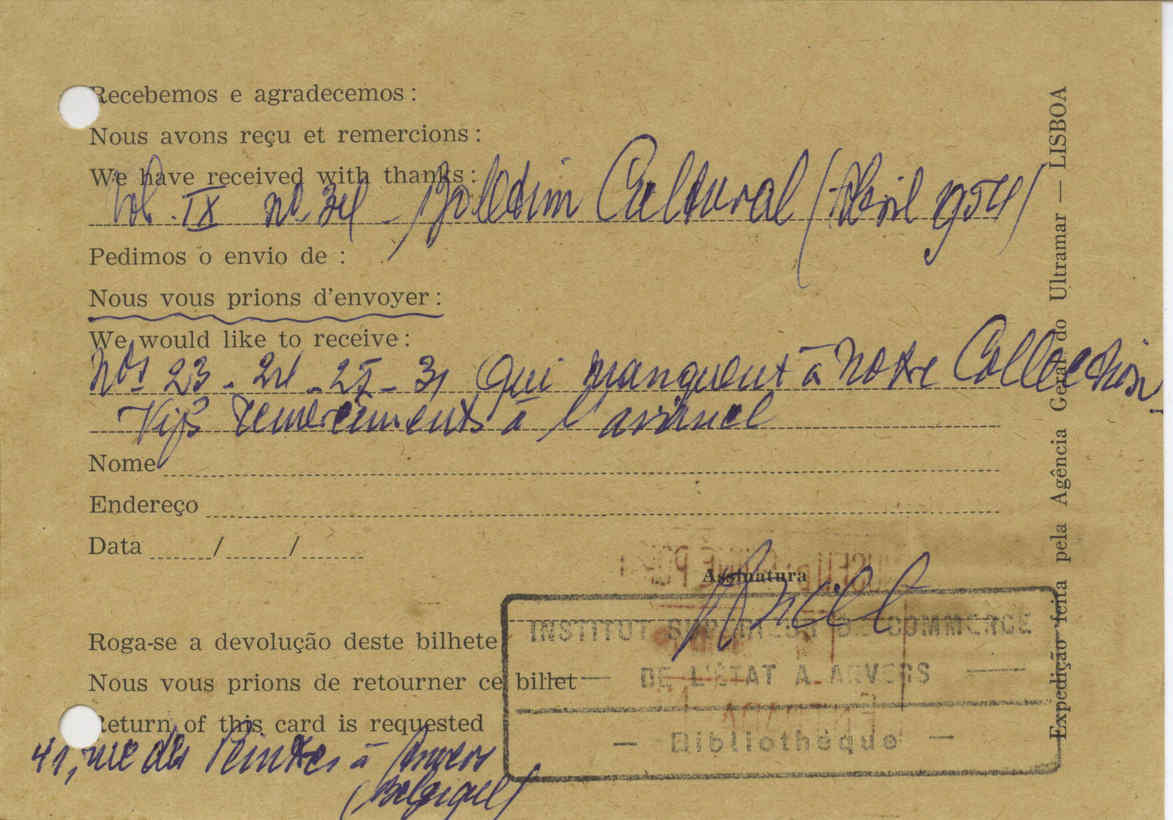 Recebemos e agradecemos :
Nous avons reçu et remercions :
We have received with thanks :
Vol. IX nº 34 - Boletim Cultural (Abril 1954)
Pedimos o envio de :
Nous vous prions d'envoyer :
We would like to receive :
Nos 23 - 24 - 25 - 31 qui manquent à notre Collection.
Vifs remerciements à l'avance
Nome
Endereço
Data / /
Assinatura
Roga-se a devolução deste bilhete
Nous vous prions de retourner ce billet
Return of this card is requested
41, rue des Peintres à Anvers
(Belgique)
INSTITUT SUPERIEUR DE COMMERCE
DE L'ETAT A ANVERS
- Bibliothèque -
Expedição feita pela Agência Geral do Ultramar — LISBOA